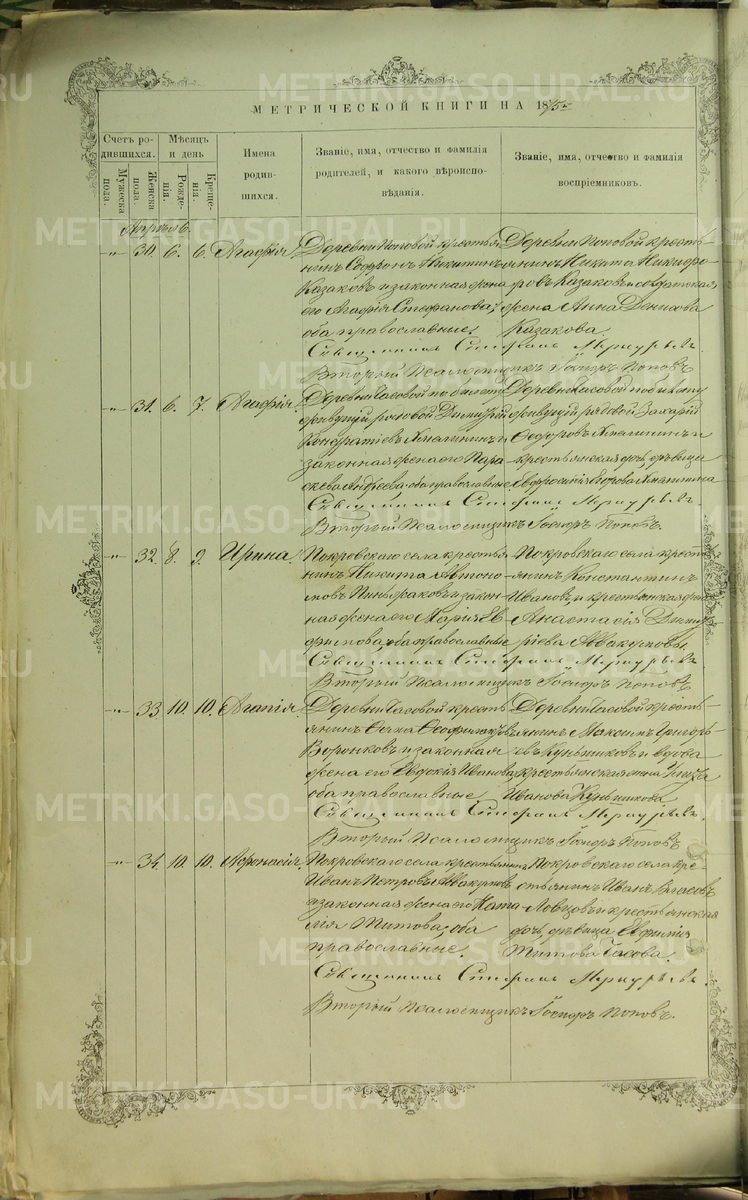 METRIKI.GASO-URAL.RU
МЕТРИЧЕСКОЙ КНИГИ НА 1875
Счетъ родившихся.
Мужеска пола.
Женска пола.
Мѣсяцъ и день
Рожденія.
Крещенія.
Имена родившихся.
Званіе, имя, отчество и фамилія родителей, и какого вѣроисповѣданія.
Званіе, имя, отчество и фамилія воспріемниковъ.
Апрѣль
30. 6. 6. Агафія.
Деревни Поповой крестья
нинъ Софронъ Никитинъ
Казаковъ и законная жена
его Агафія Стефанова,
оба православные.
Деревни Поповой кресть-
янинъ Никита Никифо
ровъ Казаковъ и солдатская
жена Анна Денисова
Казакова.
Священникъ Стефанъ Меркурьевъ.
Вторый Псаломщикъ Іосифъ Поповъ.
31. 6. 7. Агафія.
Деревни Часовой по билету
живущій рядовой Димитрій
Кондратіевъ
законная жена его Пара
скева Андреева, оба православные
Деревни Часовой по билету
живущій рядовой Захарій
Ѳедоровъ и
крестьянская дочь, дѣвица
Евфросинія
Священникъ Стефанъ Меркурьевъ
Вторый Псаломщикъ Іосифъ Поповъ.
32. 8. 9. Ирина.
Покровскаго села крестья
нинъ Никита Автоно-
мовъ и закон
ная жена его Марія Ев
фимова, оба православные
Покровскаго села кресть
янинъ Константинъ
Ивановъ, и крестьянская
Анастасія Дмит
ріева Аввакумовы.
Священникъ Стефанъ Меркурьевъ
Вторый Псаломщикъ Іосифъ Поповъ.
33 10. 10. Агапія.
Деревни Часовой кресть
янинъ
Воронковъ и законная
жена его Евдокія Иванова
оба православные
Деревни Часовой кресть-
янинъ Максимъ Григорь
евъ Кунѣниковъ и вдова
крестьянская жена
Иванова
Священникъ Стефанъ Меркурьевъ.
Вторый Псаломщикъ Іосифъ Поповъ
34. 10. 10. Афонасія.
Покровскаго села крестьянинъ
Иванъ Петровъ Аввакумов
и законная жена его Ната
лія Титова, оба
православные.
Покровскаго села кре-
стьянинъ Иванъ
и крестьянская
дочь, дѣвица Евфимія
Титова Часова.
Священникъ Стефанъ Меркурьевъ.
Вторый Псаломщикъ Іосифъ Поповъ.